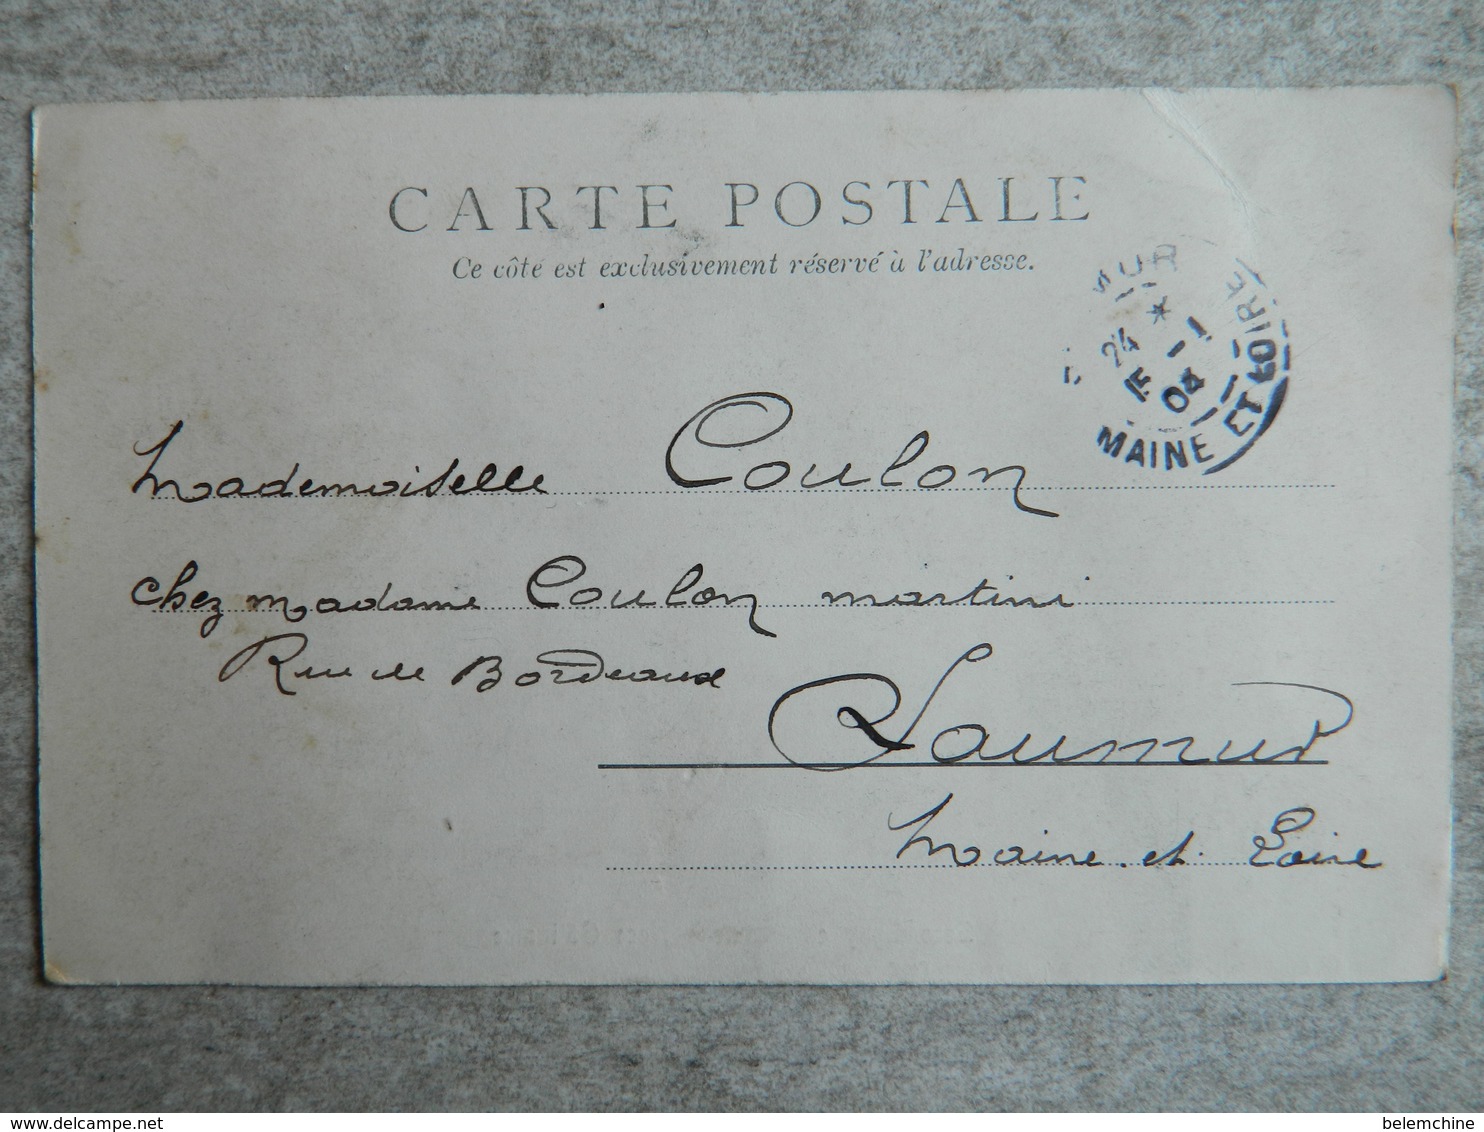 CARTE POSTALE
Ce côté est exclusivement réservé à l'adresse.
UR
24 *
1
04
MAINE ET LOIRE
Mademoiselle Coulon
chez madame Coulon martini
Rue de Bordeaux
Saumur
Maine et Loire
delcampe.net
belemchine